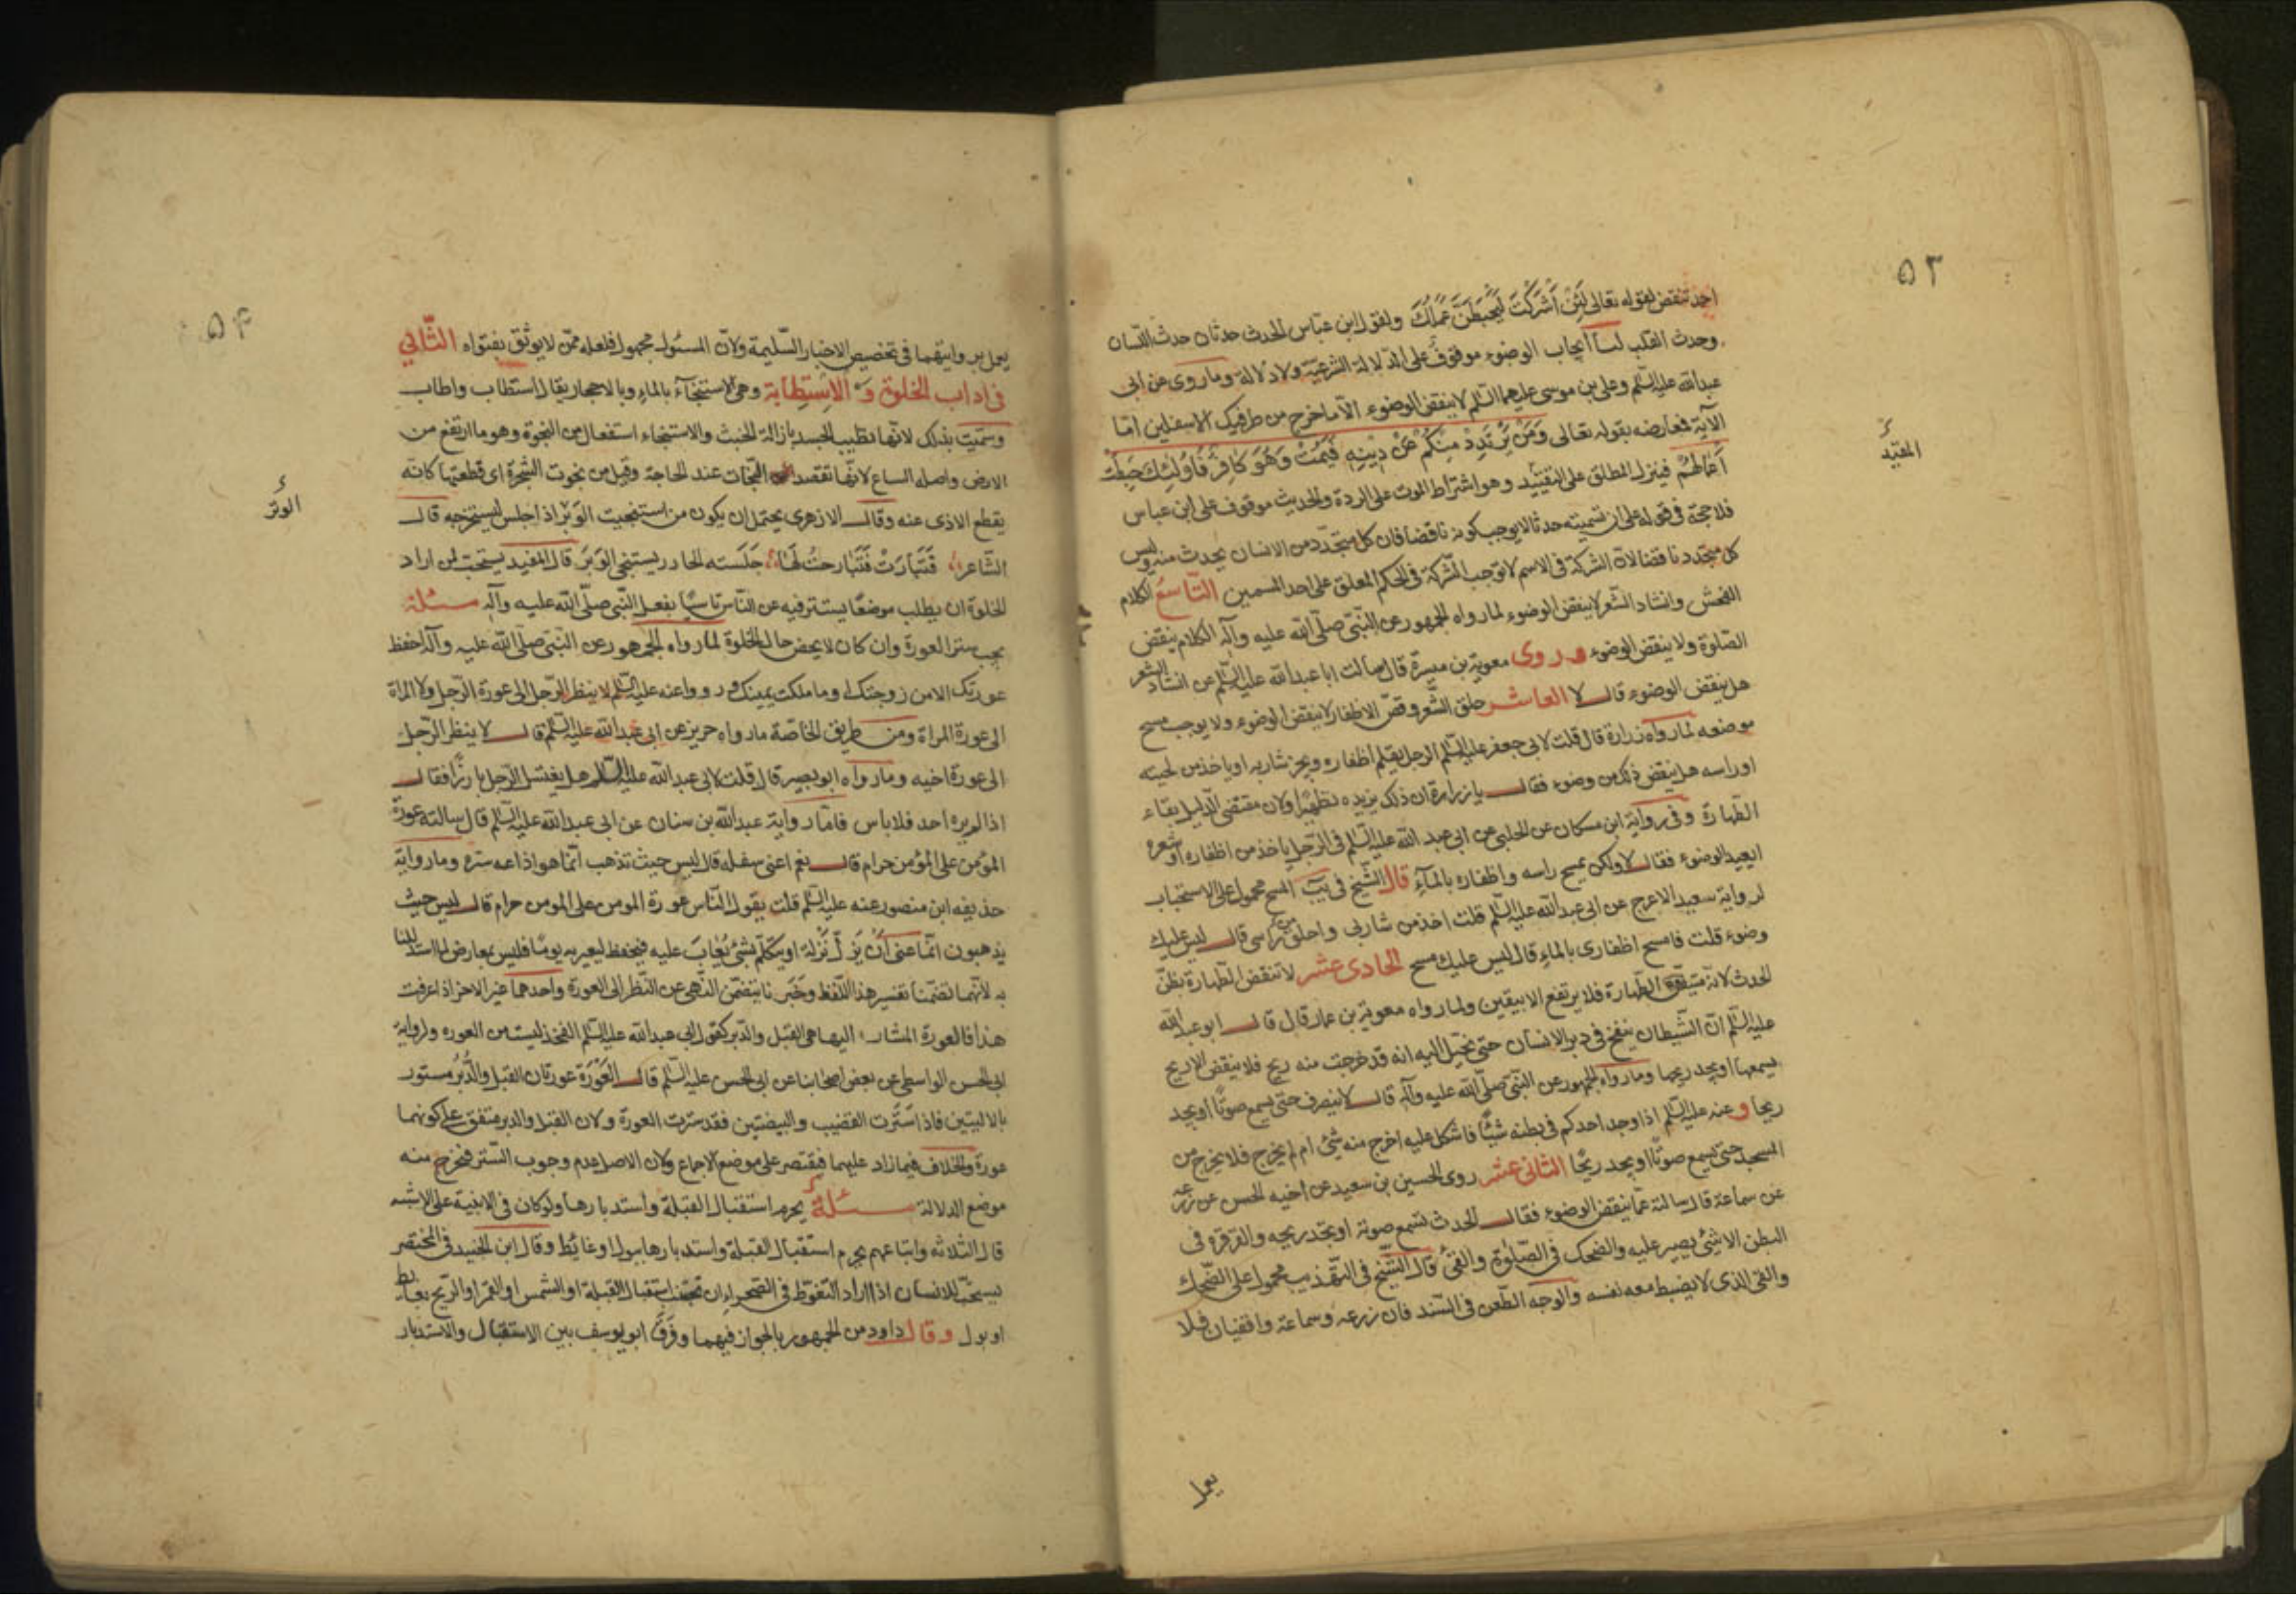 ۵۳
احمد تنقض لقوله تعالى لَئِنْ أَشْرَكْتَ لَيَحْبَطَنَّ عَمَلُكَ ولقول ابن عبّاس الحدث حدثان حدث اللسان
وحدث الفرج لنا ايجاب الوضوء موقوف على الدلالة الشرعيّة ولا دلالة وما روى عن ابى
عبدالله عليه السّلم وعلى بن موسى عليهما السّلم لا ينقض الوضوء الّا ما خرج من طرفيك الاسفلين امّا
الآية فمعارضه بقوله تعالى وَمَنْ يَرْتَدِدْ مِنْكُمْ عَنْ دِينِهِ فَيَمُتْ وَهُوَ كَافِرٌ فَأُولٰئِكَ حَبِطَتْ
أَعْمَالُهُمْ فينزل المطلق على التقييد وهو اشتراط الموت على الردة والحديث موقوف على ابن عباس
المقيد
فلا حجة فى قوله على ان تسميته حدثا لا يوجب كونه ناقضا فان كل متجدد من الانسان يحدث منه وليس
كل متجدد ناقضا لان الشركة فى الاسم لا توجب الشركة فى الحكم المعلق على احد المسمين التاسع الكلام
الفحش وانشاد الشعر لا ينقض الوضوء لما رواه الجمهور عن النّبىّ صلّى الله عليه وآله الكلام ينقض
الصّلوة ولا ينقض الوضوء وروى معوية بن ميسرة قال سالت ابا عبدالله عليه السّلم عن انشاد الشعر
هل ينقض الوضوء قال لا العاشر حلق الشّعر وقصّ الاظفار لا ينقض الوضوء ولا يوجب مسح
موضعه لما رواه زرارة قال قلت لابى جعفر عليه السّلم الرجل يقلم اظفاره ويجز شاربه او ياخذ من لحيته
او راسه هل ينقض ذلك من وضوء فقال يا زرارة ان ذلك يزيده تطهيرا ولان مقتضى الدليل بقاء
الطّهارة وفى رواية ابن مسكان عن الحلبى عن ابى عبد الله عليه السّلم فى الرّجل ياخذ من اظفاره او شعره
ايعيد الوضوء فقال لا ولكن يمسح راسه واظفاره بالماء قال الشّيخ فى يب المسح محمول على الاستحباب
لرواية سعيد الاعرج عن ابى عبدالله عليه السّلم قلت اخذ من شاربى واحلق راسى قال ليس عليك
وضوء قلت فامسح اظفارى بالماء قال ليس عليك مسح الحادى عشر لا تنقض الطّهارة بظنّ
الحدث لانه متيقن الطّهارة فلا يرتفع الا بيقين ولما رواه معوية بن عمار قال قال ابو عبدالله
عليه السّلم انّ الشّيطان ينفخ فى دبر الانسان حتى يخيّل اليه انه قد خرجت منه ريح فلا ينقض الا ريح
يسمعها او يجد ريحها وما رواه الجمهور عن النّبىّ صلّى الله عليه وآله قال لا ينصرف حتى يسمع صوتًا او يجد
ريحا وعنه عليه السّلم اذا وجد احدكم فى بطنه شيئًا فاشكل عليه اخرج منه شئ ام لم يخرج فلا يخرج من
المسجد حتى يسمع صوتًا او يجد ريحًا الثانى عشر روى الحسين بن سعيد عن اخيه الحسن عن زرعه
عن سماعة قال سالته عمّا ينقض الوضوء فقال الحدث تسمع صوته او تجد ريحه والقرقره فى
البطن الا شئ يصير عليه والضحك فى الصّلوة والقئ قال الشّيخ فى التّهذيب محمول على الضّحك
والقئ الذى لا يضبط معه نفسه والوجه الطّعن فى السّند فان زرعه وسماعة واقفيان فلا
يعمل
۵۴
يعمل بروايتهما فى تخصيص الاخبار السّليمة ولانّ المسئول مجهول فلعله ممّن لا يوثق بفتواه الثّانى
فى اداب الخلوة و الاستطابة وهى الاستنجاء بالماء وبالاحجار يقال استطاب واطاب
وسمّيت بذلك لانّها تطيب الجسد بازالة الخبث والاستنجاء استفعال من النجوة وهو ما ارتفع من
الارض واصله الساع لانّها تقصد النّجات عند الحاجة وقيل من نجوت الشّجرة اى قطعتها كانّه
يقطع الاذى عنه وقال الازهرى يحتمل ان يكون من استنجيت الوتر اذا جلس ليستخرجه قال
الوتر
الشّاعر فَتَبازَتْ فَتَبازختُ لَهَا جَلَسته الجادر يستنجى الوَتَر قال المفيد يستحب لمن اراد
الخلوة ان يطلب موضعًا يستتر فيه عن النّاس تاسيًا بفعل النّبى صلّى الله عليه وآله مسئلة
يجب ستر العورة وان كان لا يحض حال الخلوة لما رواه الجمهور عن النّبى صلّى الله عليه وآله احفظ
عورتك الا من زوجتك او ما ملكت يمينك ورووا عنه عليه السّلم لا ينظر الرّجل الى عورة الرّجل ولا المراة
الى عورة المراة ومن طريق الخاصّة ما رواه حريز عن ابى عبدالله عليه السّلم قال لا ينظر الرّجل
الى عورة اخيه وما رواه ابو بصير قال قلت لابى عبدالله عليه السّلم هل يغتسل الرّجل بارزًا فقال
اذا لم يره احد فلا باس فامّا رواية عبدالله بن سنان عن ابى عبدالله عليه السّلم قال سالته عورة
المؤمن على المؤمن حرام قال نعم اعنى سفله قال ليس حيث تذهب انّما هو اذاعه سره وما رواية
حذيفه ابن منصور عنه عليه السّلم قلت يقول النّاس عورة المومن على المومن حرام قال ليس حيث
يذهبون انّما عنى أن يَزِلّ زَلّة او يتكلّم بشئ يُعابَ عليه فيحفظ ليعير به يومًا فليس بمعارض لما استدللنا
به لانّهما تضمّنا تفسير هذا اللّفظ وخبرنا يتضمّن النّهى عن النّظر الى العورة واحدهما غير الاخر اذا عرفت
هذا فالعورة المشار اليها هى القبل والدّبر كقول ابى عبدالله عليه السّلم الفخذ ليست من العوره ولرواية
ابى الحسن الواسطى عن بعض اصحابنا عن ابى الحسن عليه السّلم قال العَوْرَة عورتان القبل والدُّبُر مستور
بالاليتين فاذا سترت القضيب والبيضتين فقد سترت العورة ولان القبل والدبر متفق على كونهما
عورة والخلاف فيما زاد عليهما فيقتصر على موضع الاجماع ولان الاصل عدم وجوب السّتر فيخرج منه
موضع الدلالة مسئلة يحرم استقبال القبلة واستدبارها ولو كان فى الابنية على الاشبه
قال الثّلاثه واتباعهم يحرم استقبال القبلة واستدبارها ببول او غايط وقال ابن الجنيد فى المختصر
يستحبّ للانسان اذا اراد التّغوّط فى الصّحراء ان يجتنب استقبال القبلة او الشمس او القمر او الرّيح بغايط
او بول وقال داود من الجمهور بالجواز فيهما وفَرّقَ ابو يوسف بين الاستقبال والاستدبار